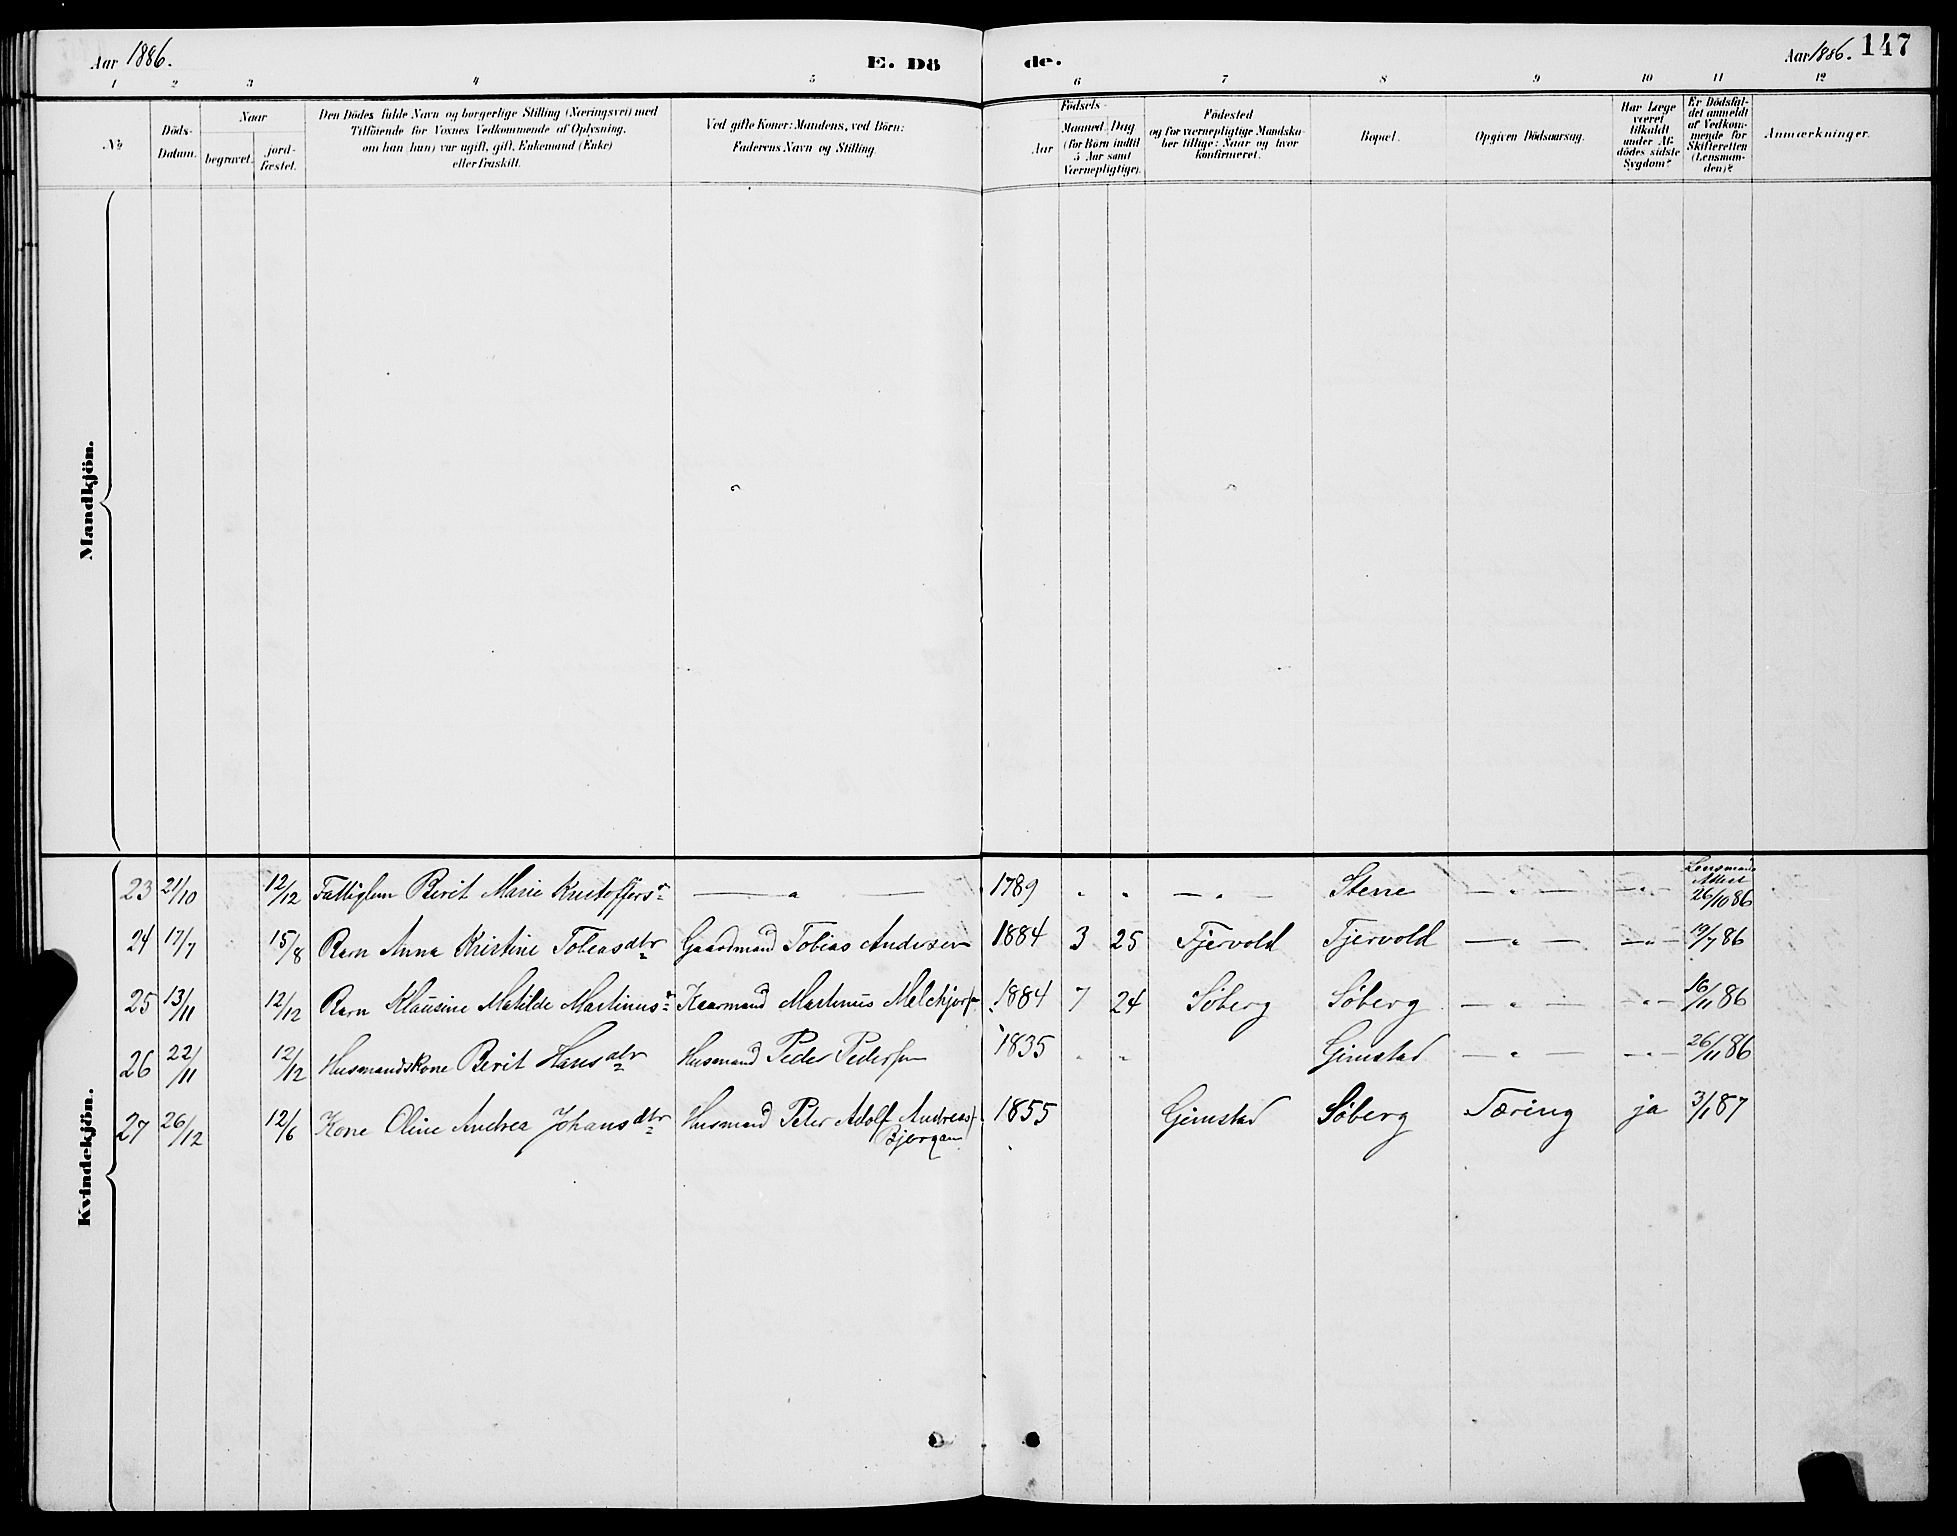 Aar 1886. E. Dö de. Aar 1886. 147
1 2 3 4 5 6 7 8 9 10 11 12
№
Döds-
Datum.
Naar
begravet.
jord-
fæstet.
Den Dödes fulde Navn og borgerlige Stilling (Næringsvei) med
Tilföiende for Voxnes Vedkommende af Oplysning,
om han (hun) var ugift, gift, Enkemand (Enke)
eller fraskilt.
Ved gifte Koner: Mandens, ved Börn:
Faderens Navn og Stilling.
Födsels-
Aar
Maaned
Dag
(for Börn indtil
5 Aar samt
Værnepligtige).
Födested
og for værnepligtige Mandska-
ber tillige: Naar og hvor
konfirmeret.
Bopæl.
Opgiven Dödsaarsag.
Har Læge
været
tilkaldt
under Af-
dödes sidste
Sygdom?
Er Dödsfal-
det anmeldt
af Vedkom-
mende for
Skifteretten
(Lensman-
den)?
Anmærkninger.
Mandkjön.
Kvindekjön.
23 21/10 12/12 Fattiglem Berit Marie Kristoffersr — " — 1789 " " — " — Stene — " — — " — Lensmands Attest 26/10 86
24 17/7 15/8 Barn Anna Kristine Tobiasdtr Gaardmand Tobias Andersen 1884 3 25 Fjervold Fjervold — " — — " — 19/7 86
25 13/11 12/12 Barn Klausine Matilde Martinusr Kaarmand Martinus Melchjors. 1884 7 24 Söberg Söberg — " — — " — 16/11 86
26 22/11 12/12 Husmandskone Berit Hansdtr Husmand Peder Pedersen 1835 " " Gimstad — " — — " — 26/11 86
27 26/12 12/6 Kone Oline Andrea Johansdtr Husmand Peter Adolf Andreas. 1855 Gimstad Söberg Tæring ja 3/1 87
Bjorgan